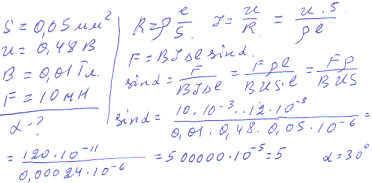 S = 0,05 мм²
u = 0,48 В
B = 0,01 Тл.
F = 10 мН
α - ?
R = ρ e/S J = u/R = u·S/ρe
F = BJΔe sinα.
sinα = F/BJΔe = Fρe/BUS·e = Fρ/BUS
sinα = 10·10⁻³·12·10⁻⁸/0,01·0,48·0,05·10⁻⁶ =
= 120·10⁻¹¹/0,00024·10⁻⁶ = 500000·10⁻⁵ = 5 α = 30°